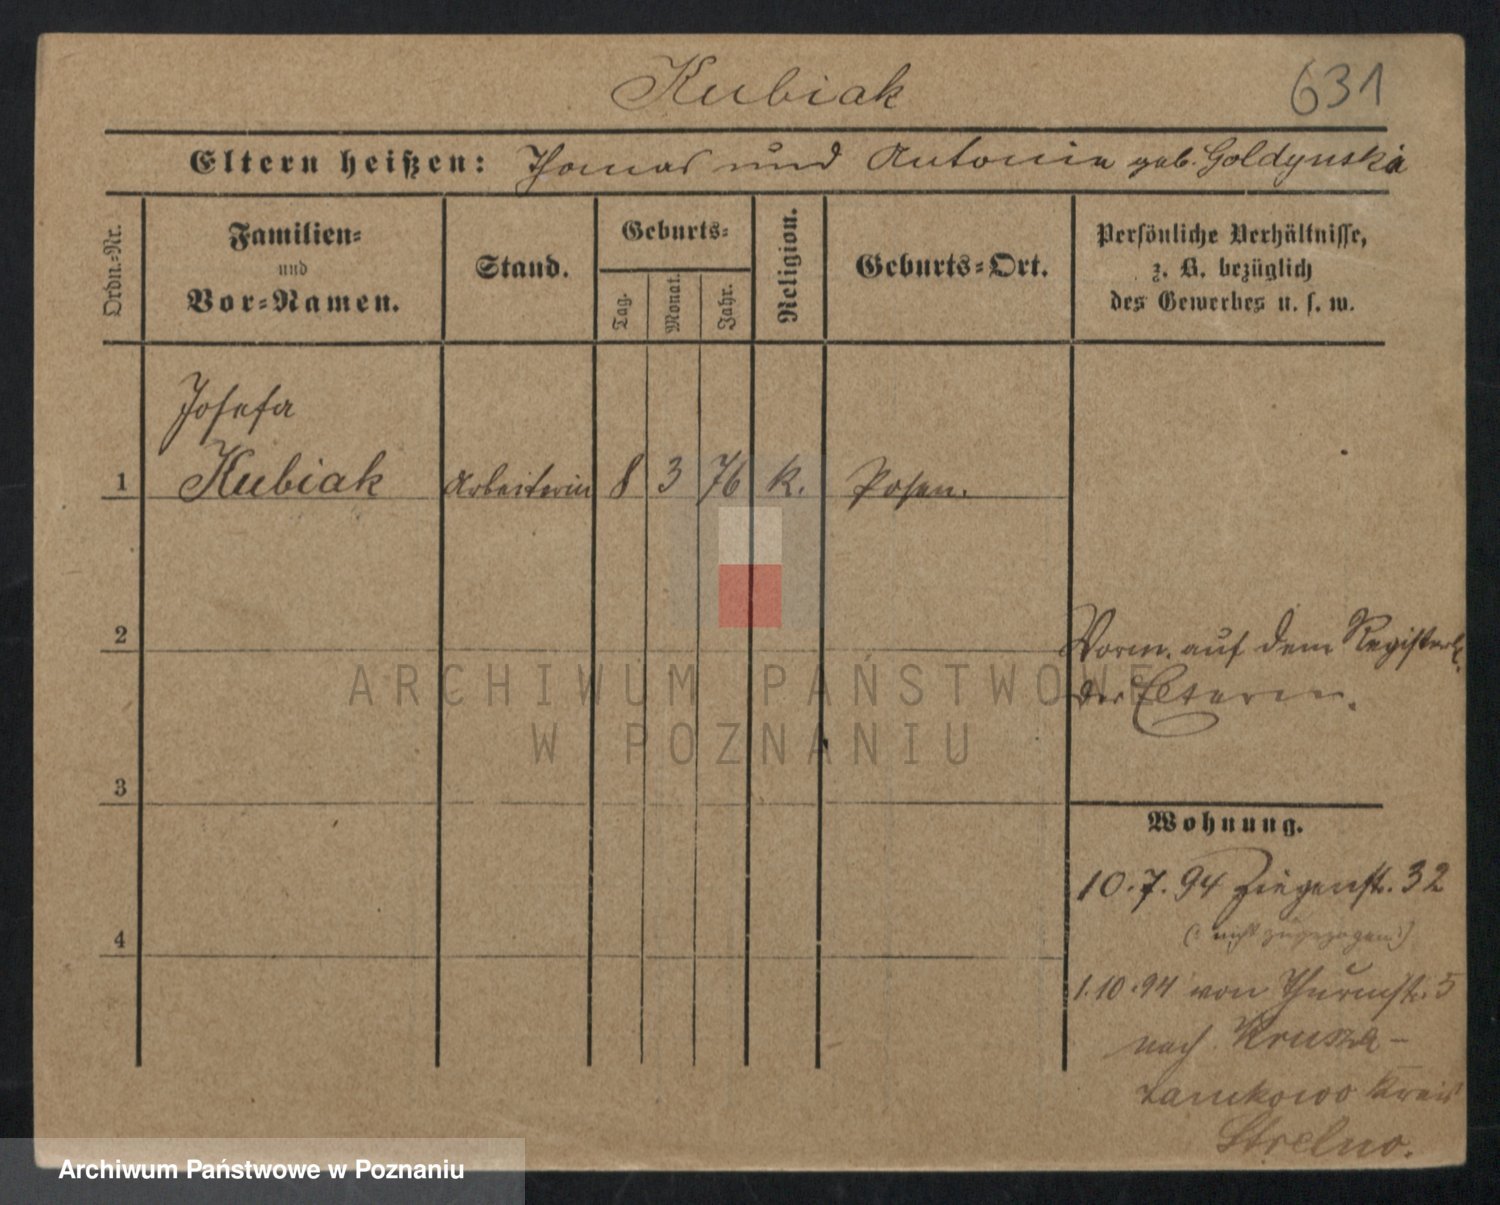 Kubiak
631
Eltern heißen: Thomas und Antonia geb. Goldynska
Ordn.-Nr.
Familien-
und
Vor-Namen.
Stand.
Geburts-
Tag.
Monat.
Jahr.
Religion.
Geburts-Ort.
Persönliche Verhältnisse,
z. B. bezüglich
des Gewerbes u. s. w.
Josefa
1 Kubiak Arbeiterin 8 3 76 k. Posen.
2
Vorm. auf dem Registerbl.
der Eltern.
3
Wohnung.
10.7.94 Ziegenstr. 32
(: nicht zugezogen :)
4
1.10.94 von Thurmstr. 5
nach Krusza-
zamkowo Kreis
Strelno.
ARCHIWUM PAŃSTWOWE
W POZNANIU
Archiwum Państwowe w Poznaniu